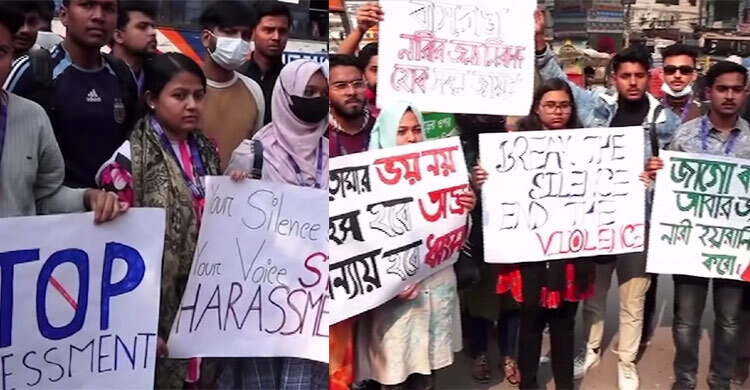 adidas
TOP
ESSMENT
Your Silence
Your Voice S
HARASSME
নারীর জন্য নিরাপদ
হোক সকল জায়গা
আমার ভয় নয়
হবে অস্ত্র
অন্যায় হবে ধ্বংস
BREAK THE
SILENCE
END THE
VIOLENCE
জাগো
আবার
নারী হয়রানি
করো